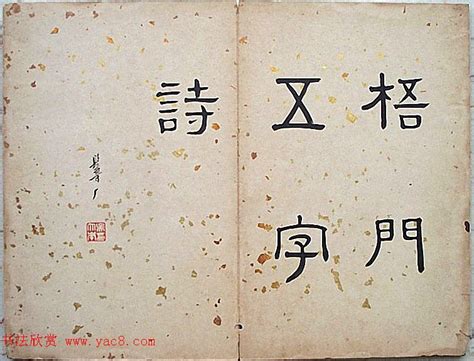 梧門
五字
詩
书法欣赏 www.yac8.com